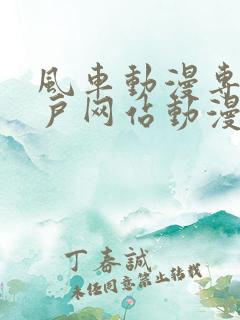 風車動漫專
戶网佔動漫
丁春誠
未经同意禁止转载